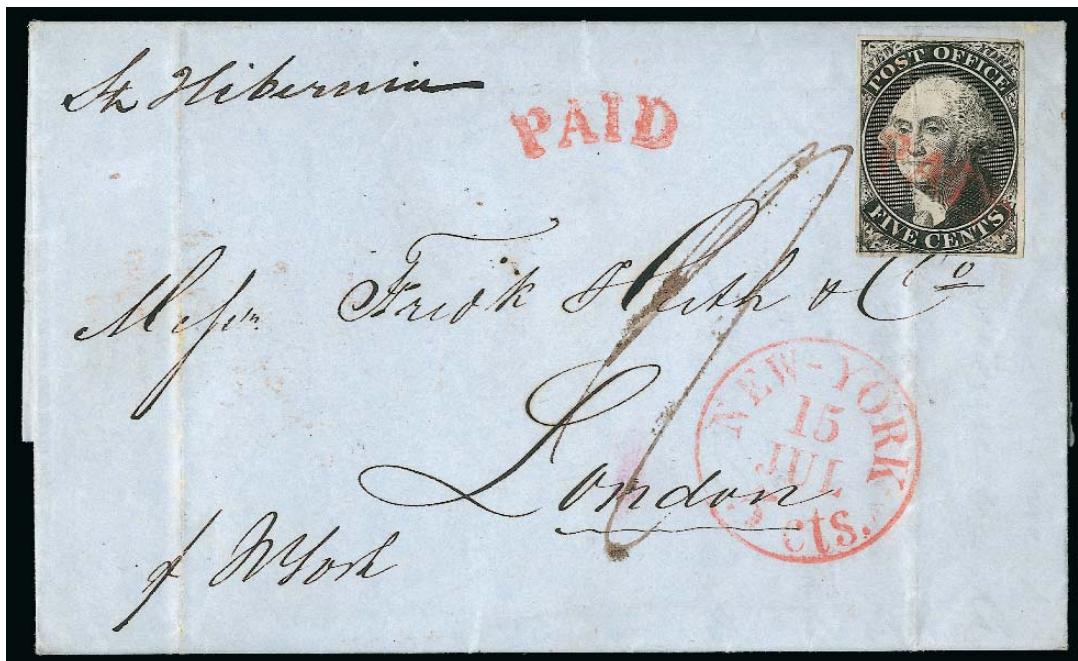 St Hibernia
PAID
NEW YORK
POST OFFICE
FIVE CENTS
PAID
Messrs Fredk Huth & Co
London
NEW-YORK
15
JUL
5 cts.
p N York